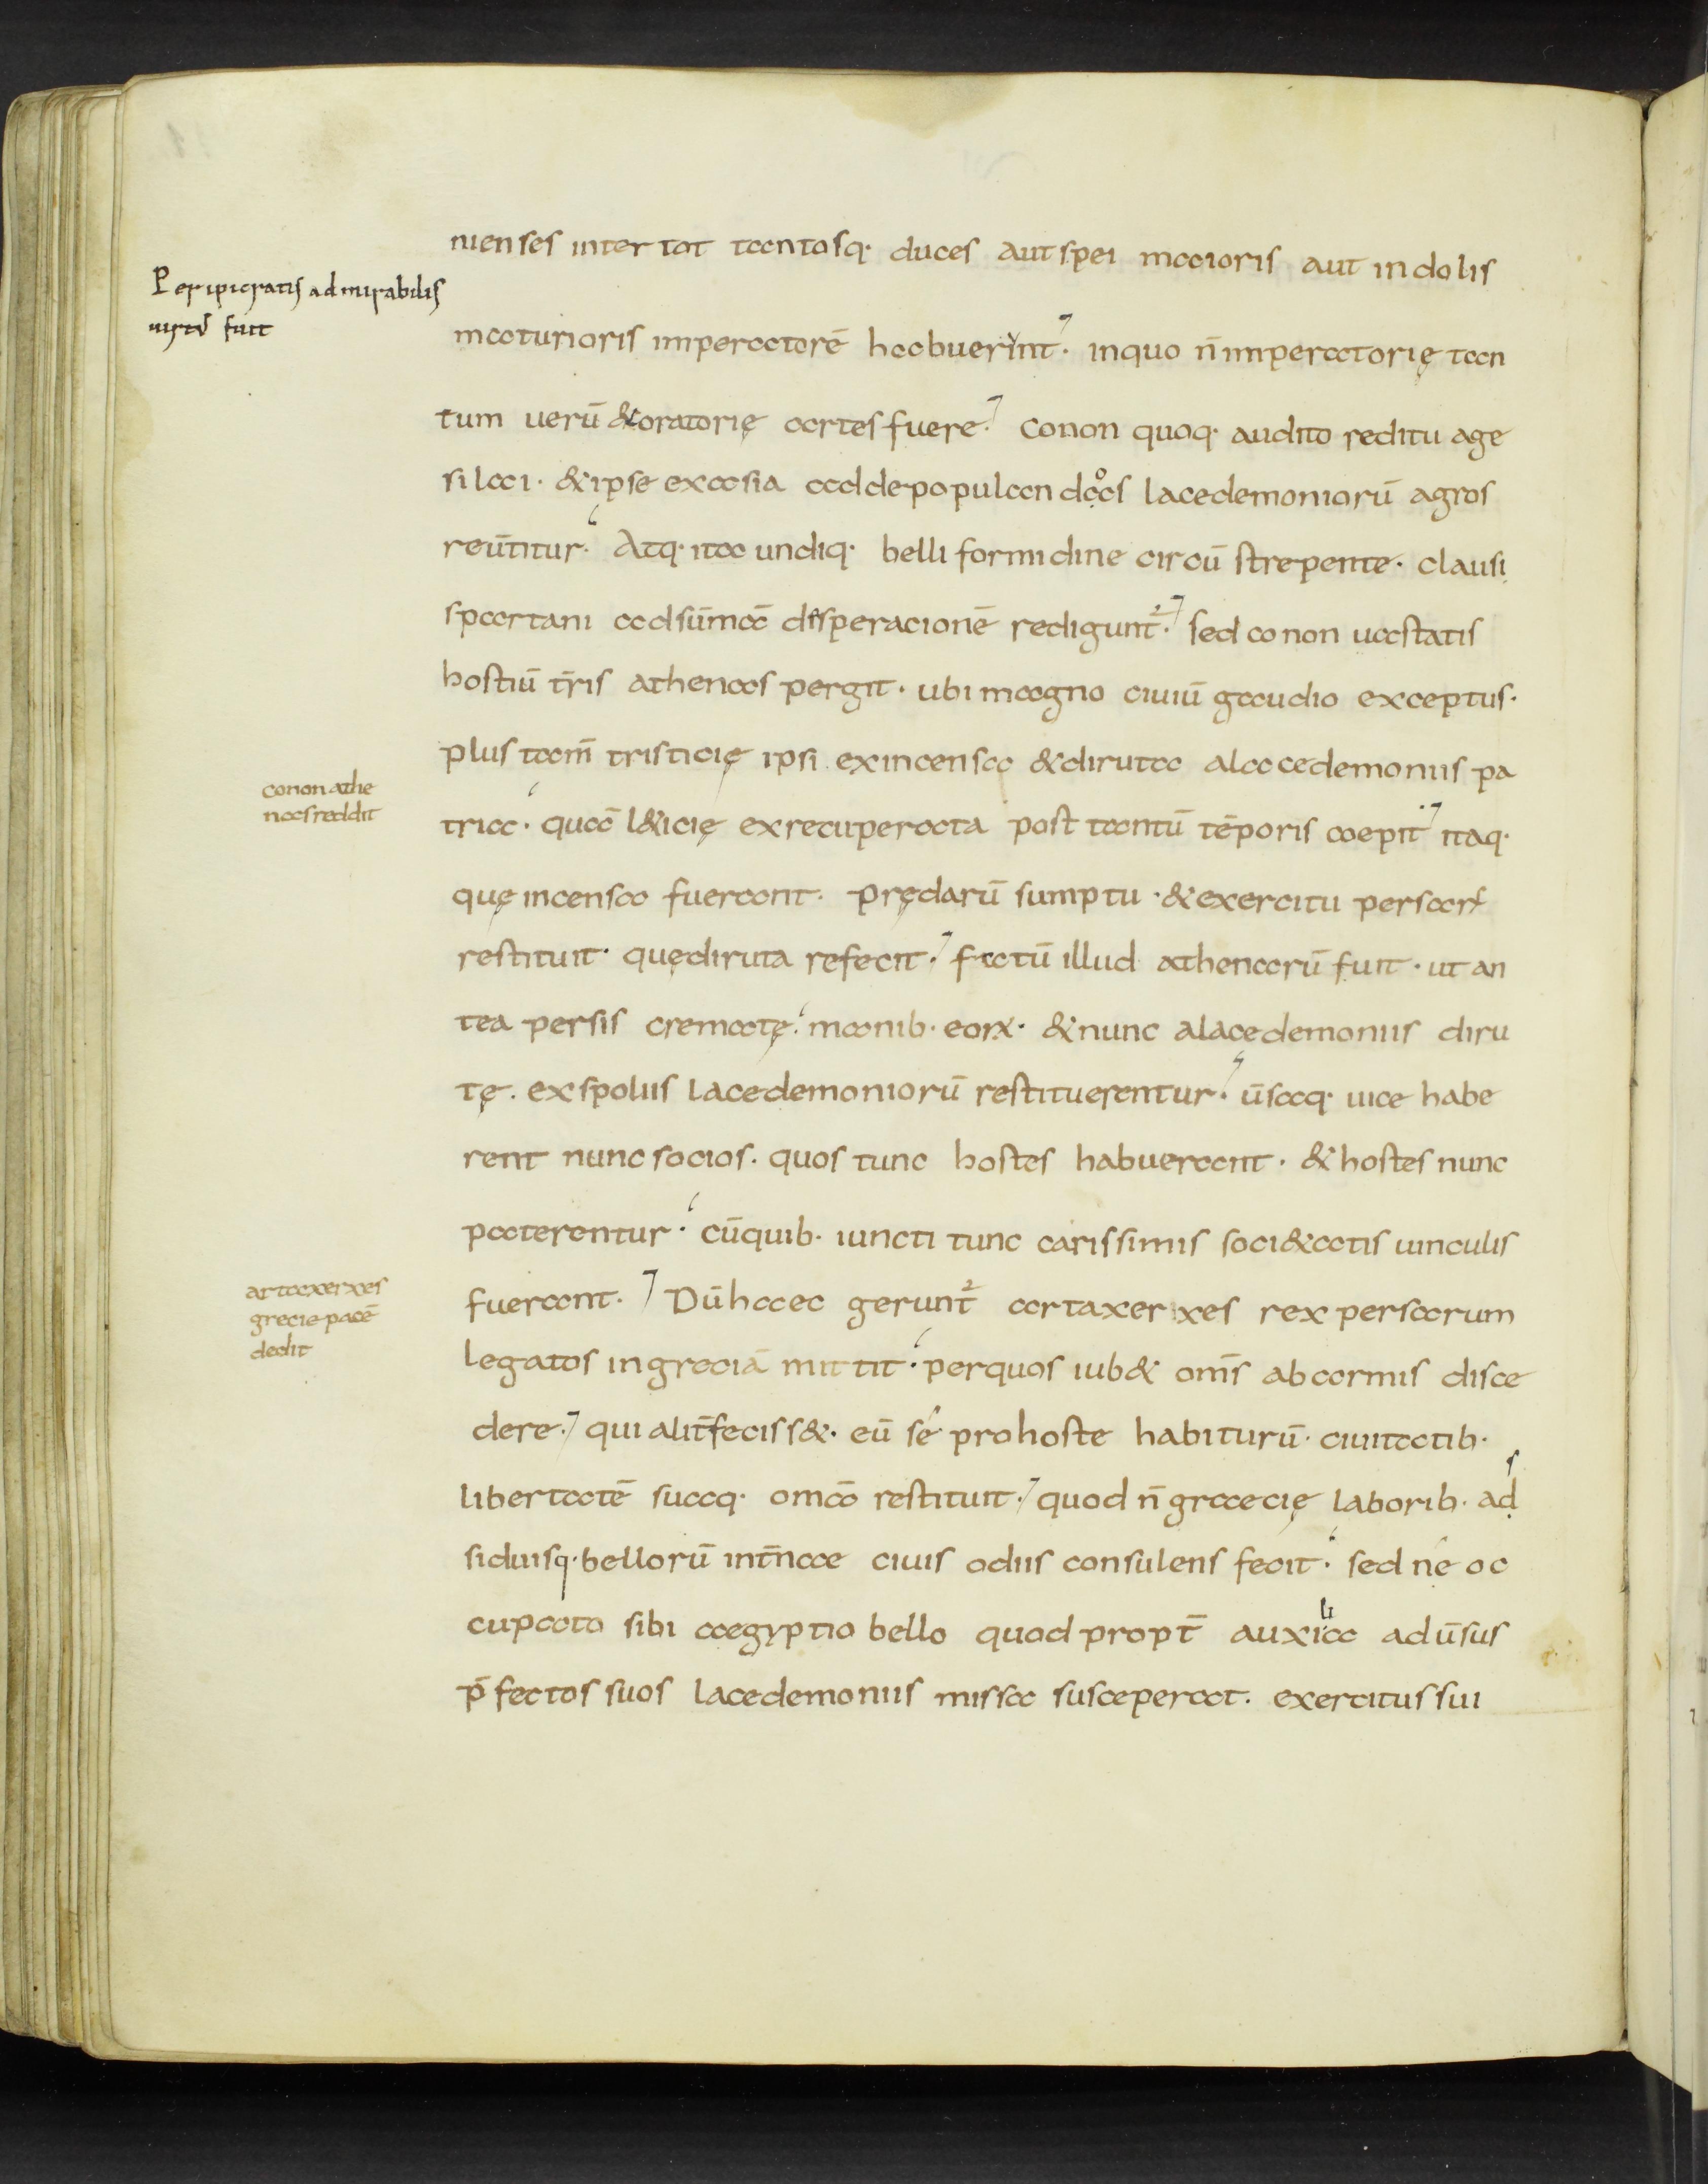 nienses inter tot tantosq· duces aut spei maioris aut indolis
Peripicratis admirabilis
uirt' fuit
maturioris imperatorē habuerint· inquo n̄ imperatorię tan
tum uerū & oratorię artes fuere· Conon quoq· audito reditu age
silai· & ipse exasia addepopulandos lacedemoniorū agros
reūtitur· Atq· ita undiq· belli formidine circū strepente· clausi
spartani adsūmā desperacionē redigunt᷑· sed conon uastatis
hostiū t̄ris athenas pergit· ubi magno ciuiū gaudio exceptus·
plus tam̄ tristicię ipsi exincensa & diruta alacedemoniis pa
conon athe
nas reddit
tria· quā l&icię exrecuperata post tantū tēporis coepit itaq·
quę incensa fuerant· prędarū sumptu· & exercitu persarū
restituit· quę diruta refecit· fatū illud athenarū fuit· ut an
tea persis crematę· manib· eorꝝ· & nunc alacedemoniis diru
tę· exspoliis lacedemoniorū restituerentur· ūsaq· uice habe
rent nunc socios· quos tunc hostes habuerant· & hostes nunc
paterentur· cūquib· iuncti tunc carissimis soci&atis uinculis
artaxerxes
grecie pacē
dedit
fuerant· Dū haec gerunt᷑ artaxerxes rex persarum
legatos ingreciā mittit· perquos iub& om̄s abarmis disce
dere· qui alit̄ feciss&· eū se prohoste habiturū· ciuitatib·
libertatē suaq· omā restituit· quod n̄ graecię laborib· ad
siduisq· bellorū int̄nae ciuis odiis consulens fecit· sed ne oc
cupato sibi aegyptio bello quod propt̄ auxilia adūsus
p̄fectos suos lacedemoniis missa susceperat· exercitus sui